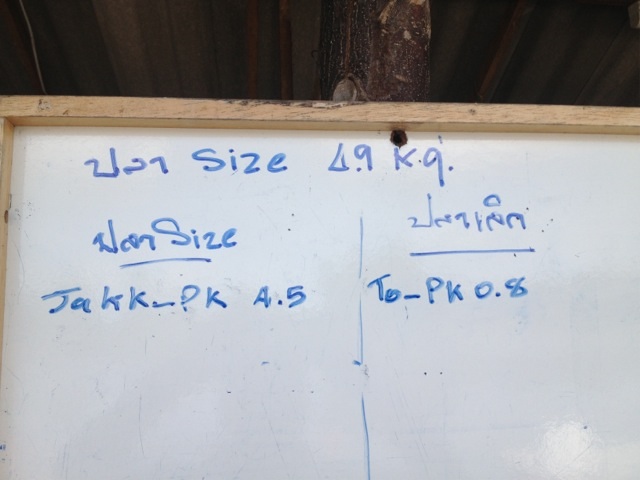 ปลา Size 4.9 K.g.
ปลา Size
Jakk-PK 4.5
ปลาเล็ก
To-PK 0.8